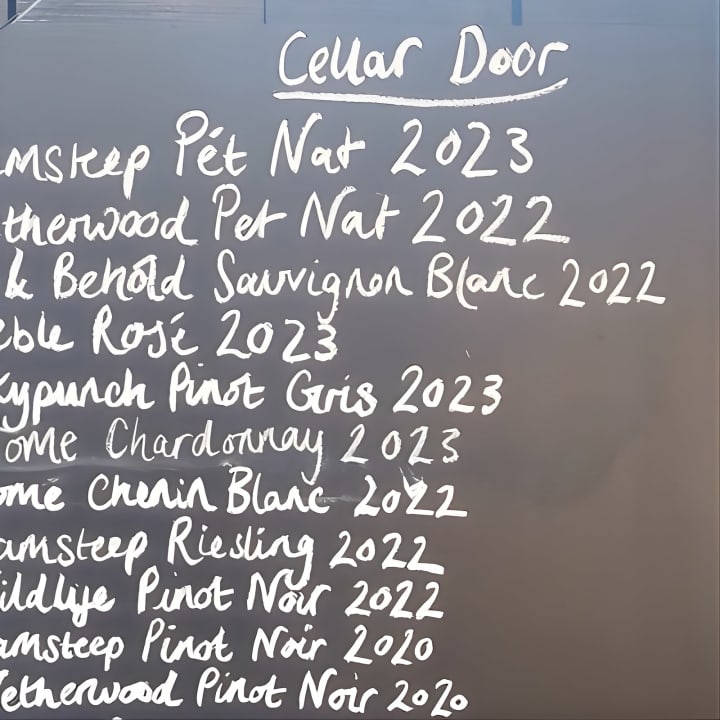 Cellar Door
amsteep Pét Nat 2023
etherwood Pet Nat 2022
& Behold Sauvignon Blanc 2022
eble Rosé 2023
kypunch Pinot Gris 2023
ome Chardonnay 2023
ome Chenin Blanc 2022
amsteep Riesling 2022
ildlife Pinot Noir 2022
amsteep Pinot Noir 2020
etherwood Pinot Noir 2020